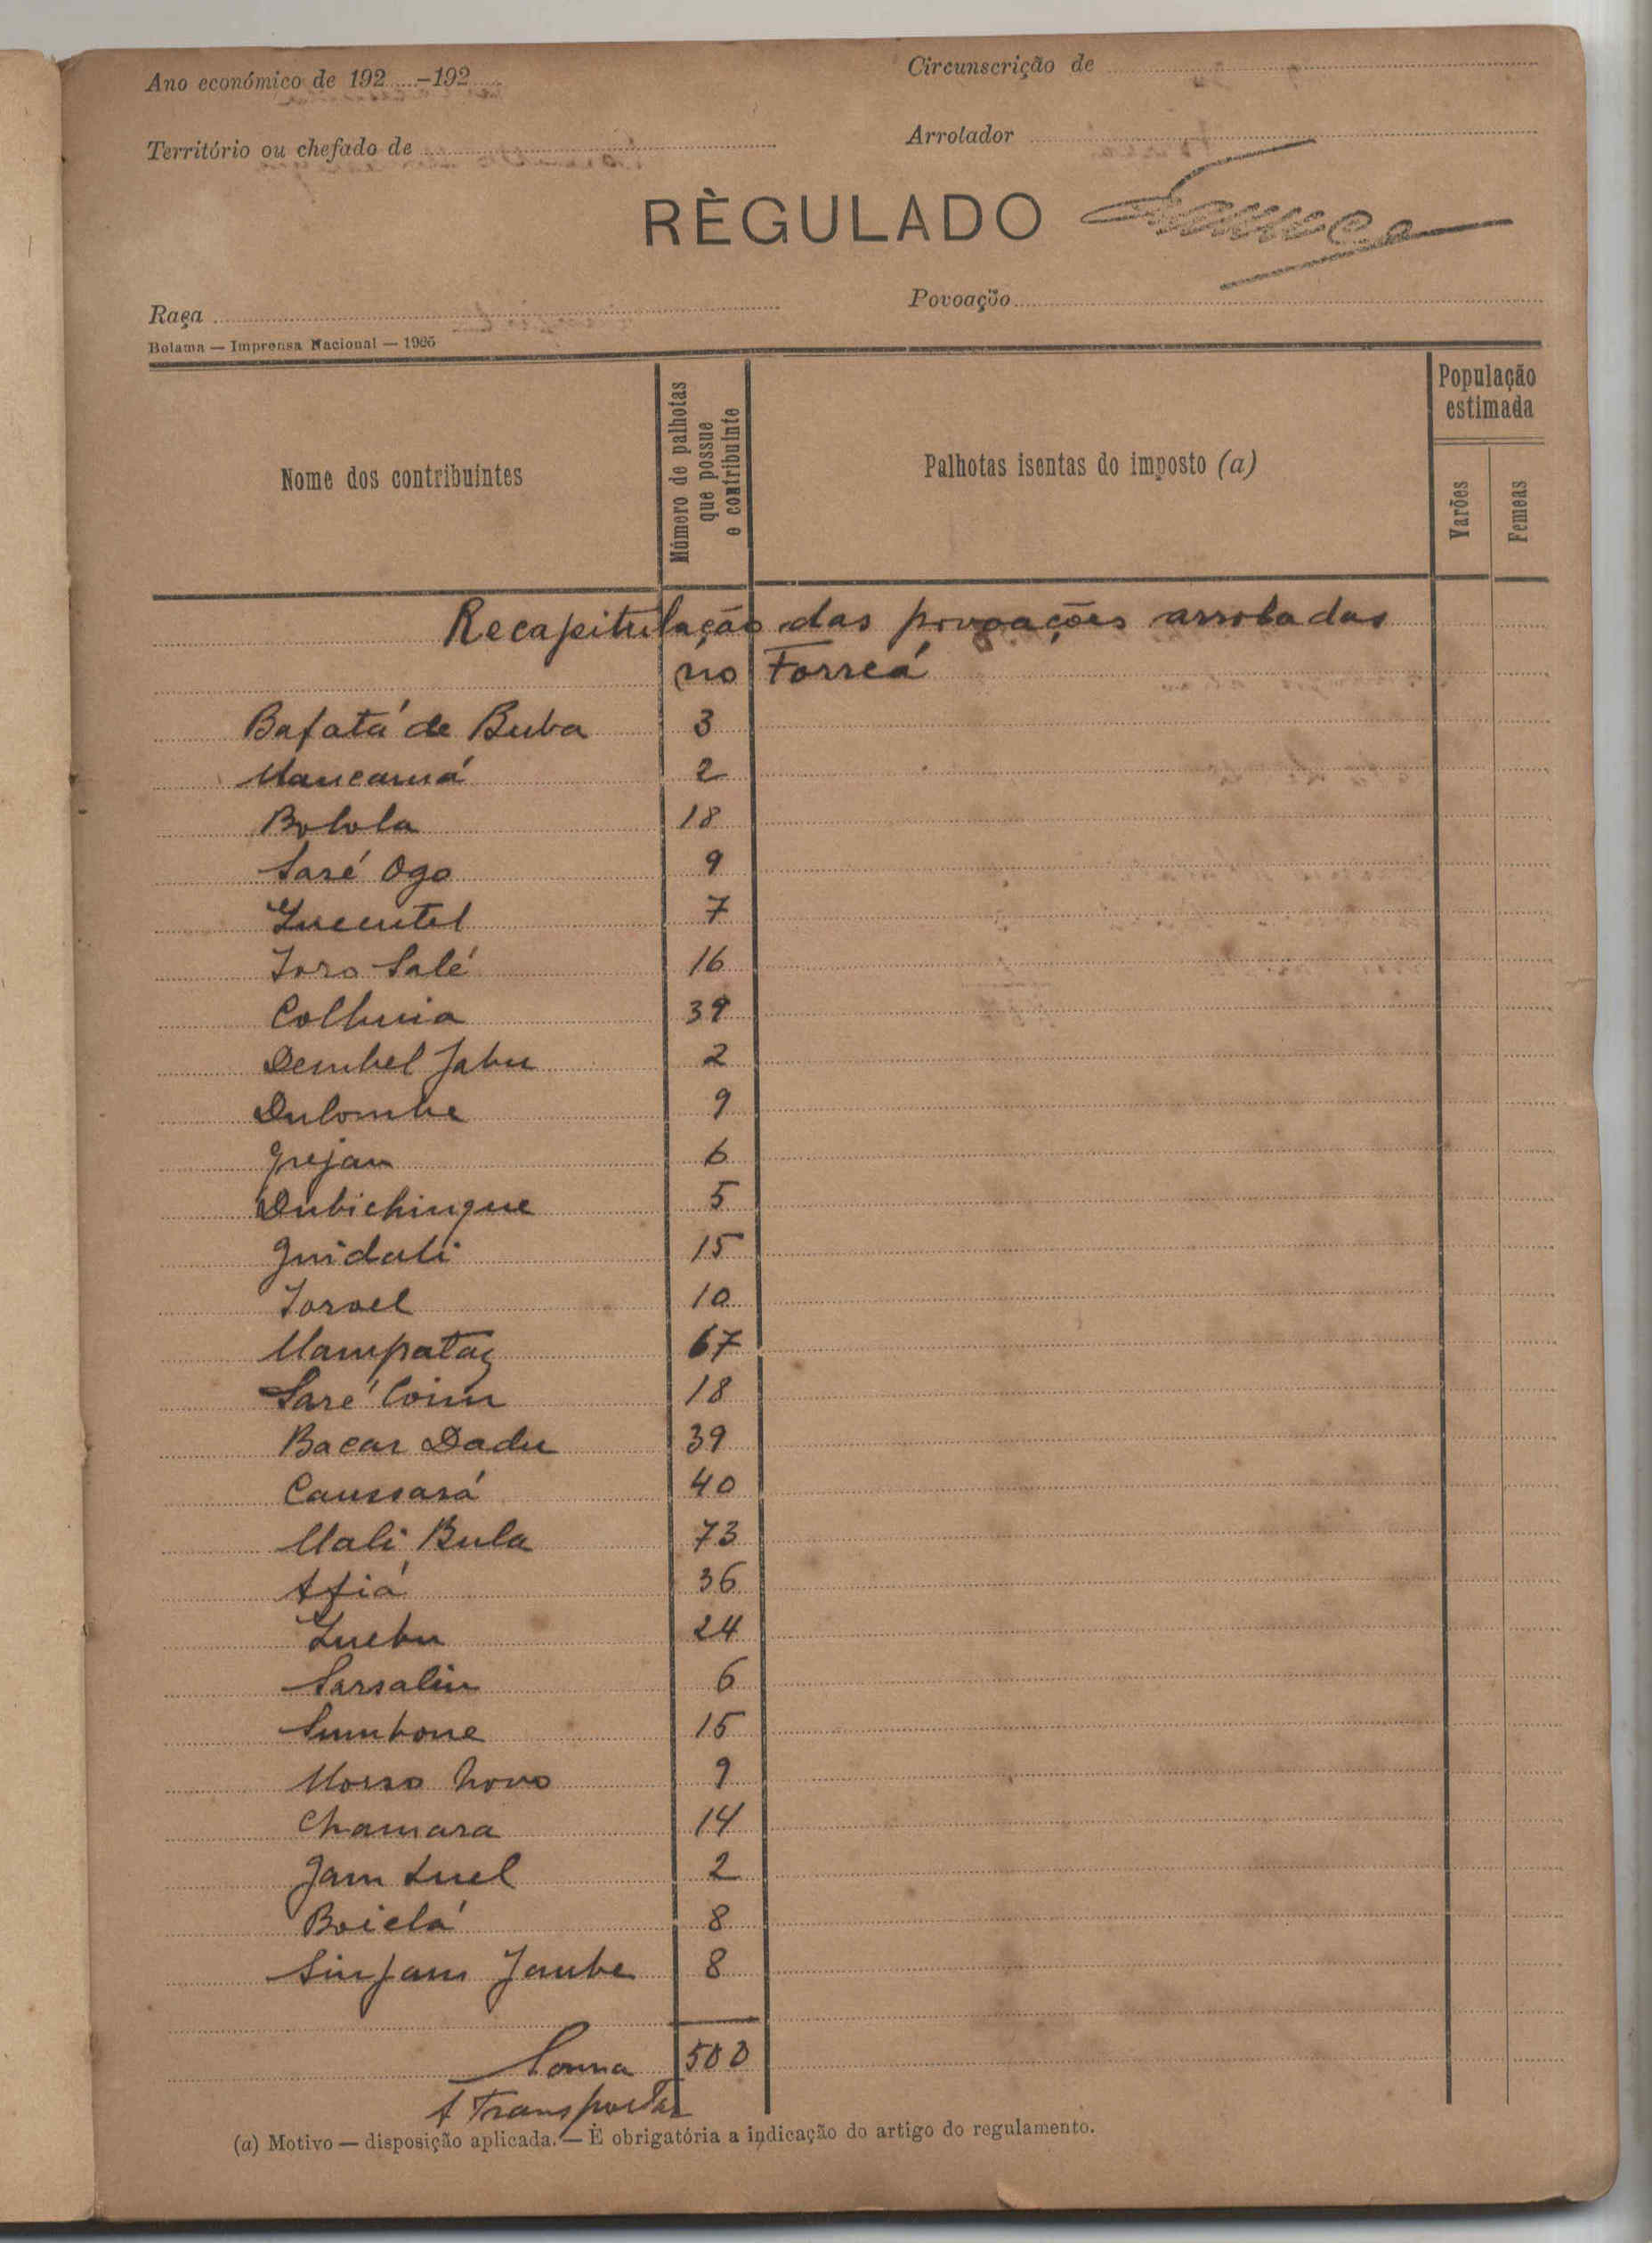 Ano económico de 192.....-192.....
Circunscrição de
Território ou chefado de
Arrolador
RÈGULADO
Raça
Povoação
Bolama — Imprensa Nacional — 1925
Nome dos contribuintes
Número de palhotas que possue o contribuinte
Palhotas isentas do imposto (a)
População estimada
Varões
Femeas
Recapitulação das povoações arroladas
no Forreá
Bafatá de Buba 3
Mancamá 2
Bolola 18
Saré Ogo 9
7
Joro Salé 16
Colbuia 39
Dembel Jabu 2
Dulombe 9
Grejan 6
Dubichingue 5
Guidali 15
Joroel 10
Mampataz 67
Saré Coim 18
Bacar Dadu 39
Caussará 40
Mali Bula 73
Afiá 36
Quebu 24
Sarsalin 6
Sumbone 15
Morso Novo 9
Chamara 14
Jam Luel 2
Boielá 8
Sinjam Jambe 8
Soma 500
A Transportar
(a) Motivo — disposição aplicada. — È obrigatória a indicação do artigo do regulamento.